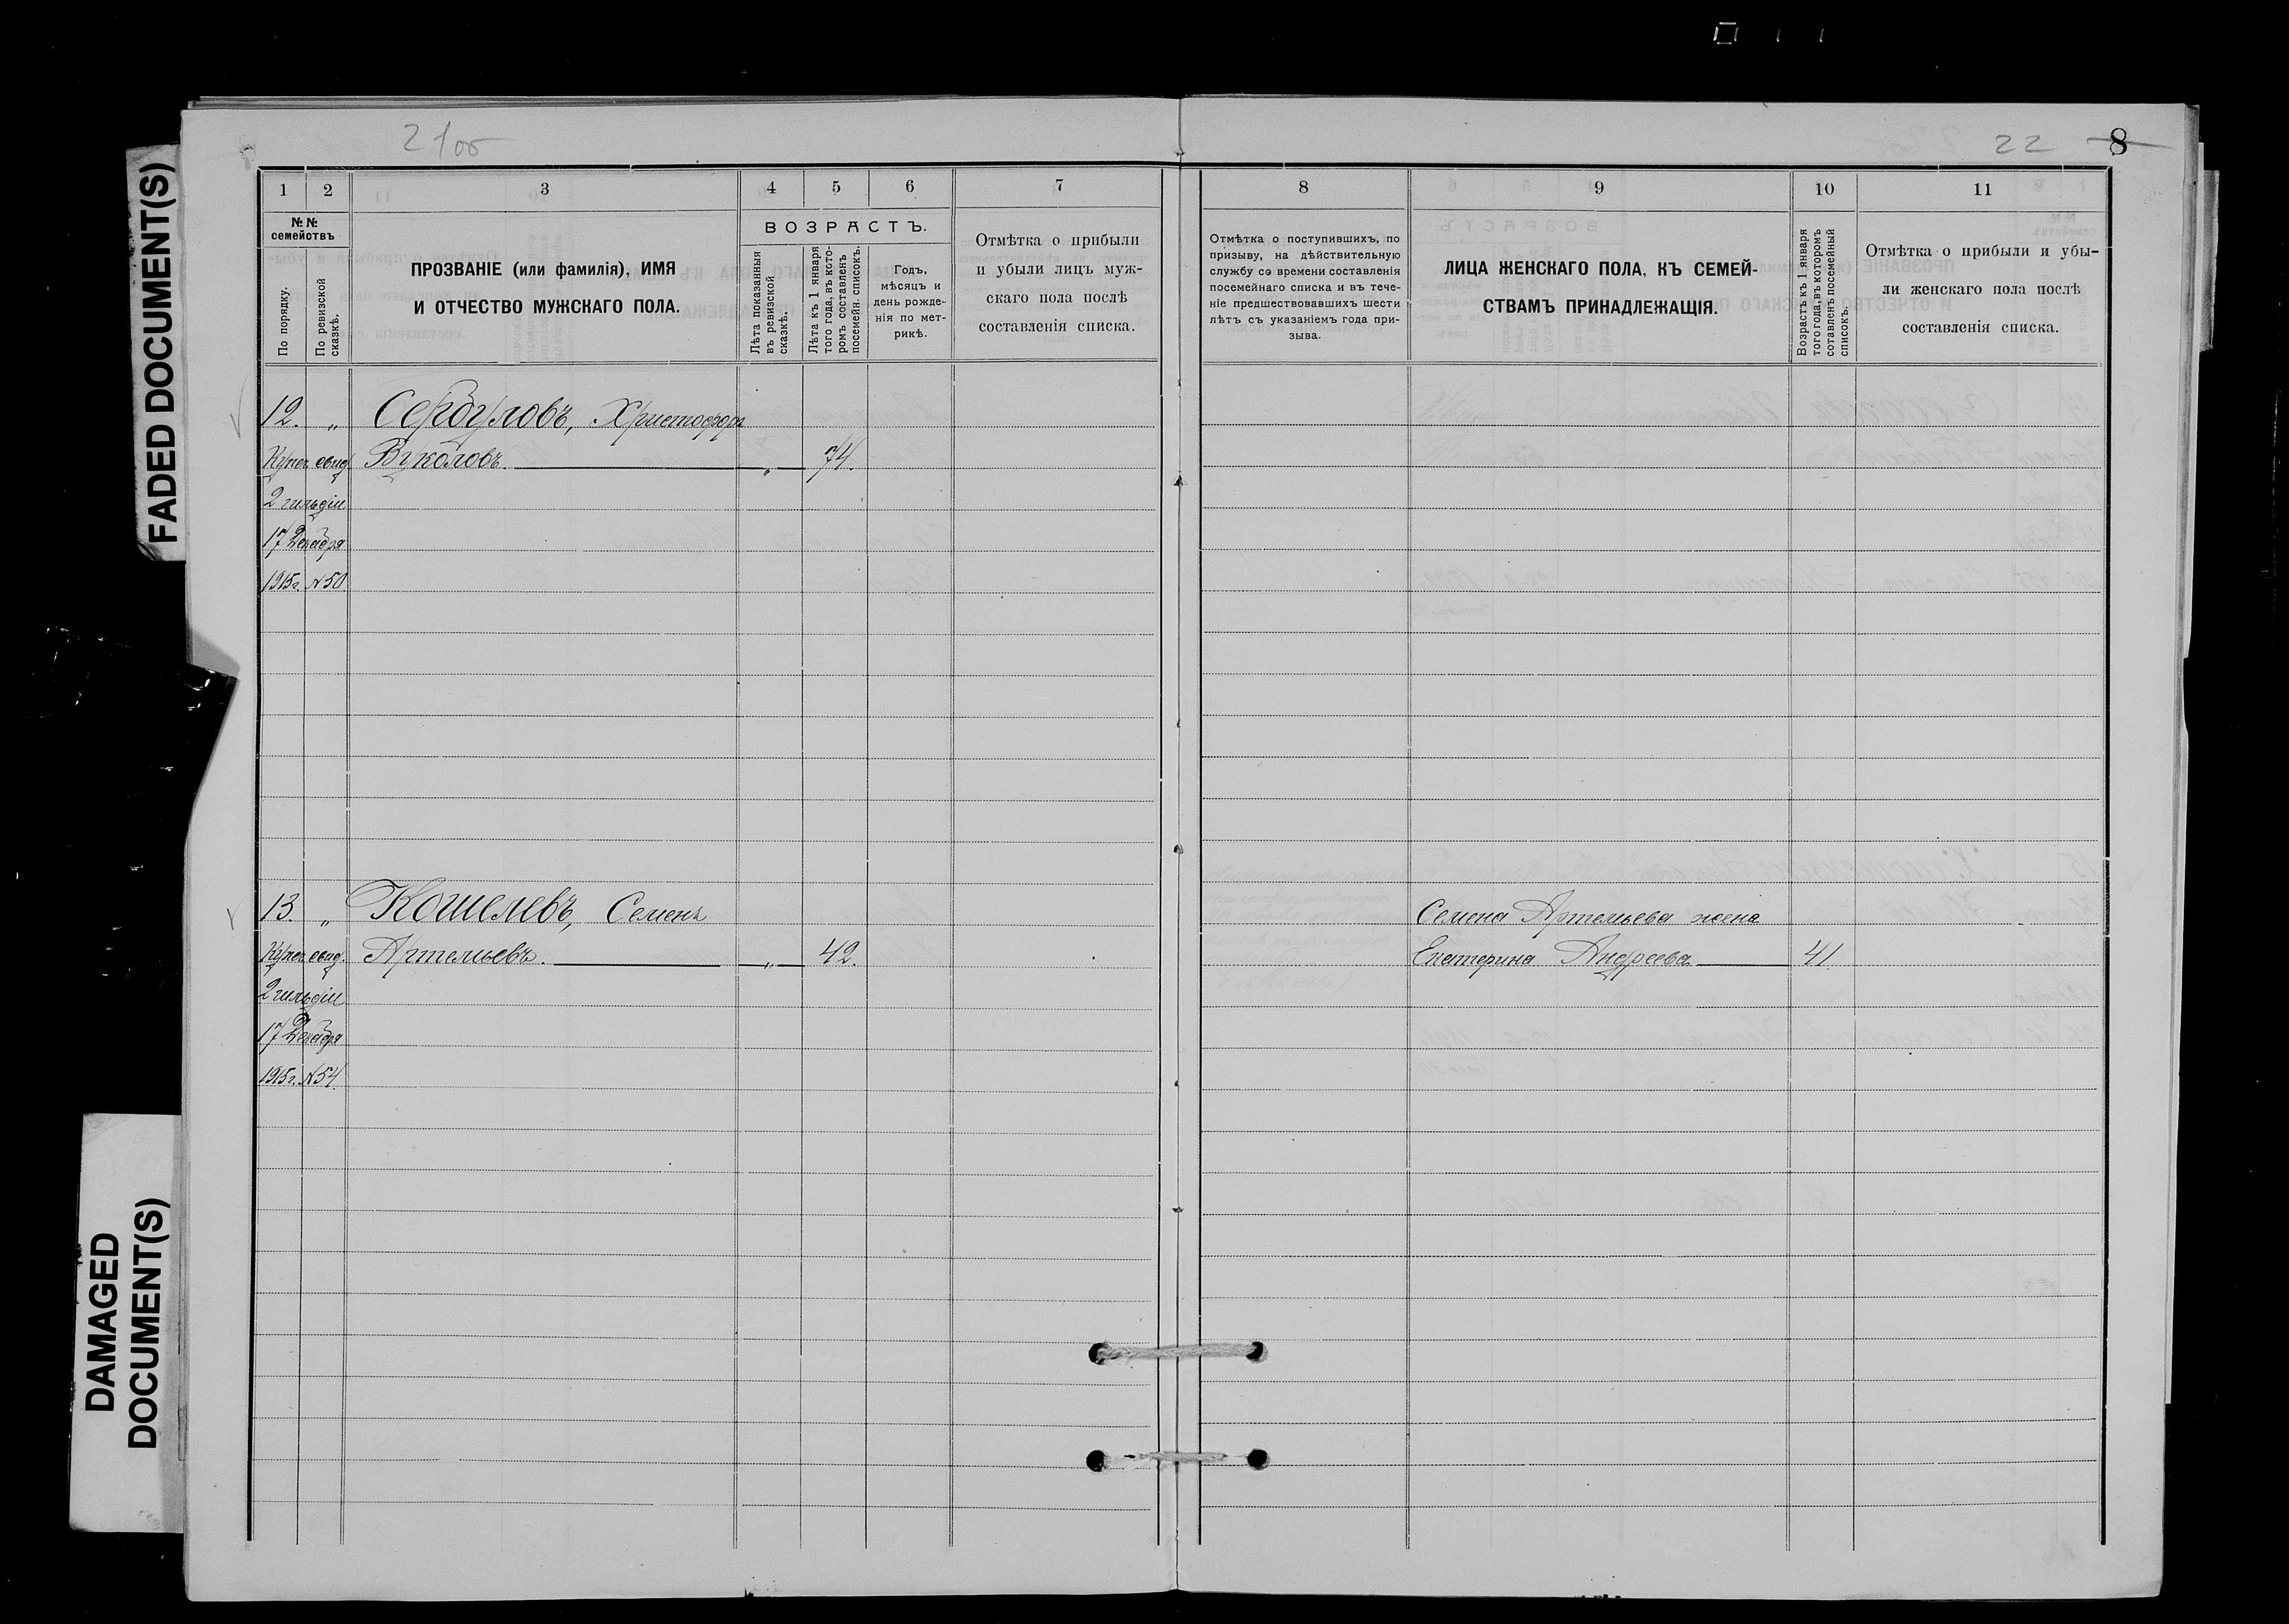 FADED DOCUMENT(S)
DAMAGED
DOCUMENT(S)
21об
22 8
1 2 3 4 5 6 7
№№
семействъ
По порядку.
По ревизской
сказкѣ.
ПРОЗВАНІЕ (или фамилія), ИМЯ
И ОТЧЕСТВО МУЖСКАГО ПОЛА.
ВОЗРАСТЪ.
Лѣта показанныя
въ ревизской
сказкѣ.
Лѣта къ 1 января
того года, въ кото-
ромъ составленъ
посемейн. списокъ.
Годъ,
мѣсяцъ и
день рожде-
нія по мет-
рикѣ.
Отмѣтка о прибыли
и убыли лицъ муж-
скаго пола послѣ
составленія списка.
12. „ Сербуловъ, Христофоръ
Купеч. свид. Вуколовъ. „ 74.
2 гильдіи
17 Декабря
1915г. №50
13. „ Кошелевъ, Семенъ
Купеч. свид. Артемьевъ. „ 42.
2 гильдіи
17 Декабря
1915г. №54
8 9 10 11
Отмѣтка о поступившихъ, по
призыву, на дѣйствительную
службу со времени составленія
посемейнаго списка и въ тече-
ніе предшествовавшихъ шести
лѣтъ съ указаніемъ года при-
зыва.
ЛИЦА ЖЕНСКАГО ПОЛА, КЪ СЕМЕЙ-
СТВАМЪ ПРИНАДЛЕЖАЩІЯ.
Возрастъ къ 1 января
того года, въ которомъ
сотавленъ посемейный
списокъ.
Отмѣтка о прибыли и убы-
ли женскаго пола послѣ
составленія списка.
Семена Артемьева жена
Екатерина Андреева 41